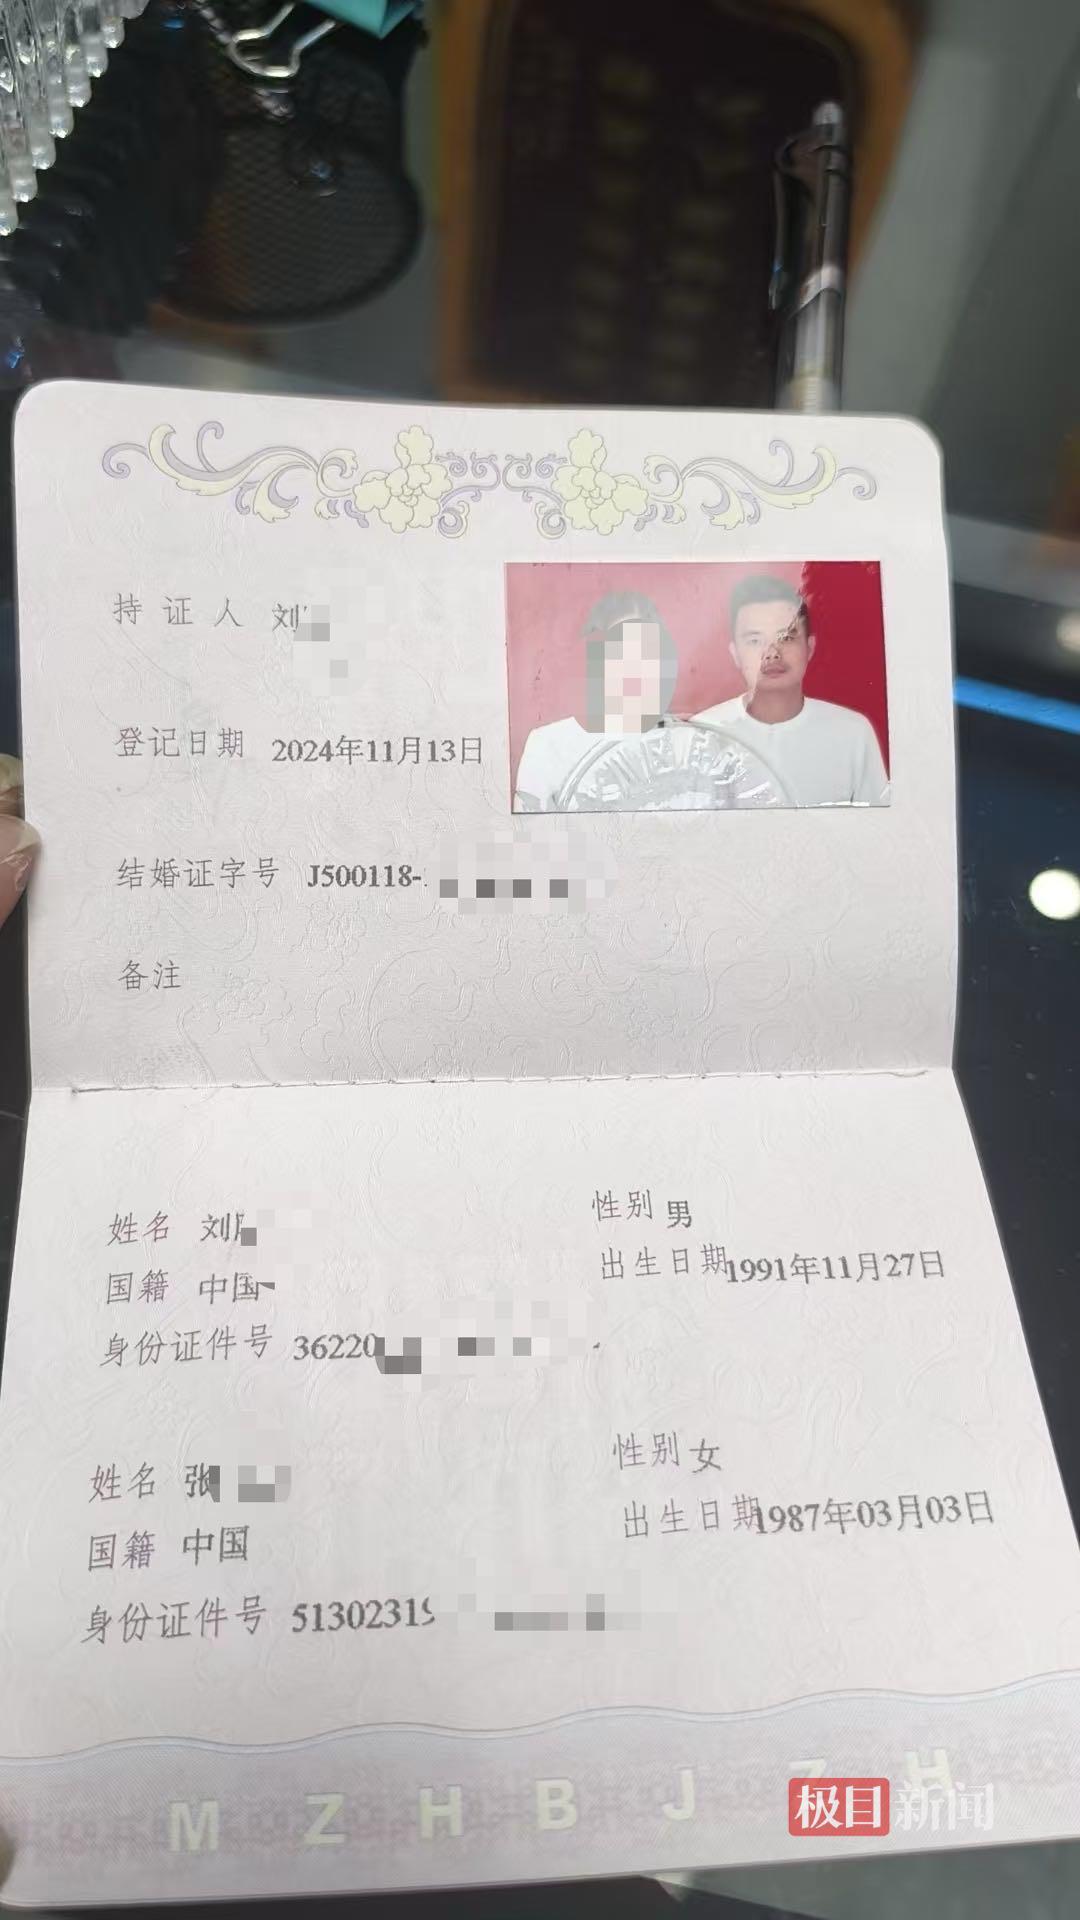 持证人 刘
登记日期 2024年11月13日
结婚证字号 J500118-
备注
姓名 刘
性别 男
国籍 中国
出生日期 1991年11月27日
身份证件号 36220
姓名 张
性别 女
国籍 中国
出生日期 1987年03月03日
身份证件号 51302319
M Z H B J Z H
极目新闻